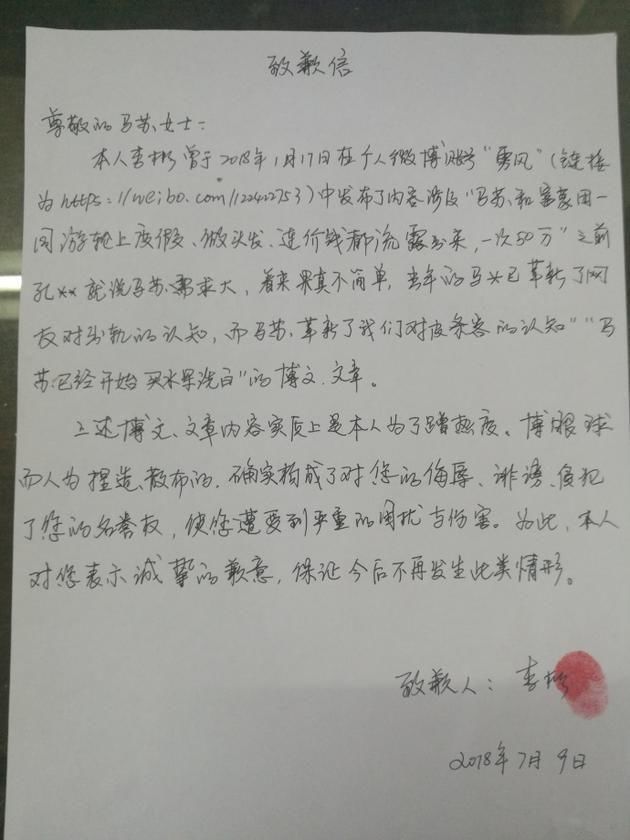 致歉信
尊敬的马苏女士:
本人李彬曾于2018年1月17日在个人微博账号“勇风”(链接
为https://weibo.com/122422753)中发布了内容涉及“马苏和富豪田一
同游轮上度假、做头发、连价钱都流露出来,一次50万”“之前
孔**就说马苏需求大,看来果真不简单,当年的马*已革新了网
友对出轨的认知,而马苏革新了我们对皮条客的认知”“马
苏已经开始买水军洗白”的博文、文章。
上述博文、文章内容实质上是本人为了蹭热度、博眼球
而人为捏造、散布的,确实构成了对您的侮辱、诽谤、侵犯
了您的名誉权,使您遭受到严重的困扰与伤害。为此,本人
对您表示诚挚的歉意,保证今后不再发生此类情形。
致歉人:李彬
2018年7月9日